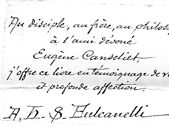 Au disciple, au frère, au philoso
à l'ami dévoué
Eugène Canseliet,
j'offre ce livre en témoignage de v
et profonde affection.
A. H. S. Fulcanelli